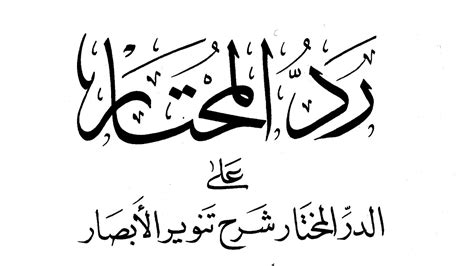 رَدُّ المُحْتَار
على
الدرِّ المختار شرح تنوير الأبصار